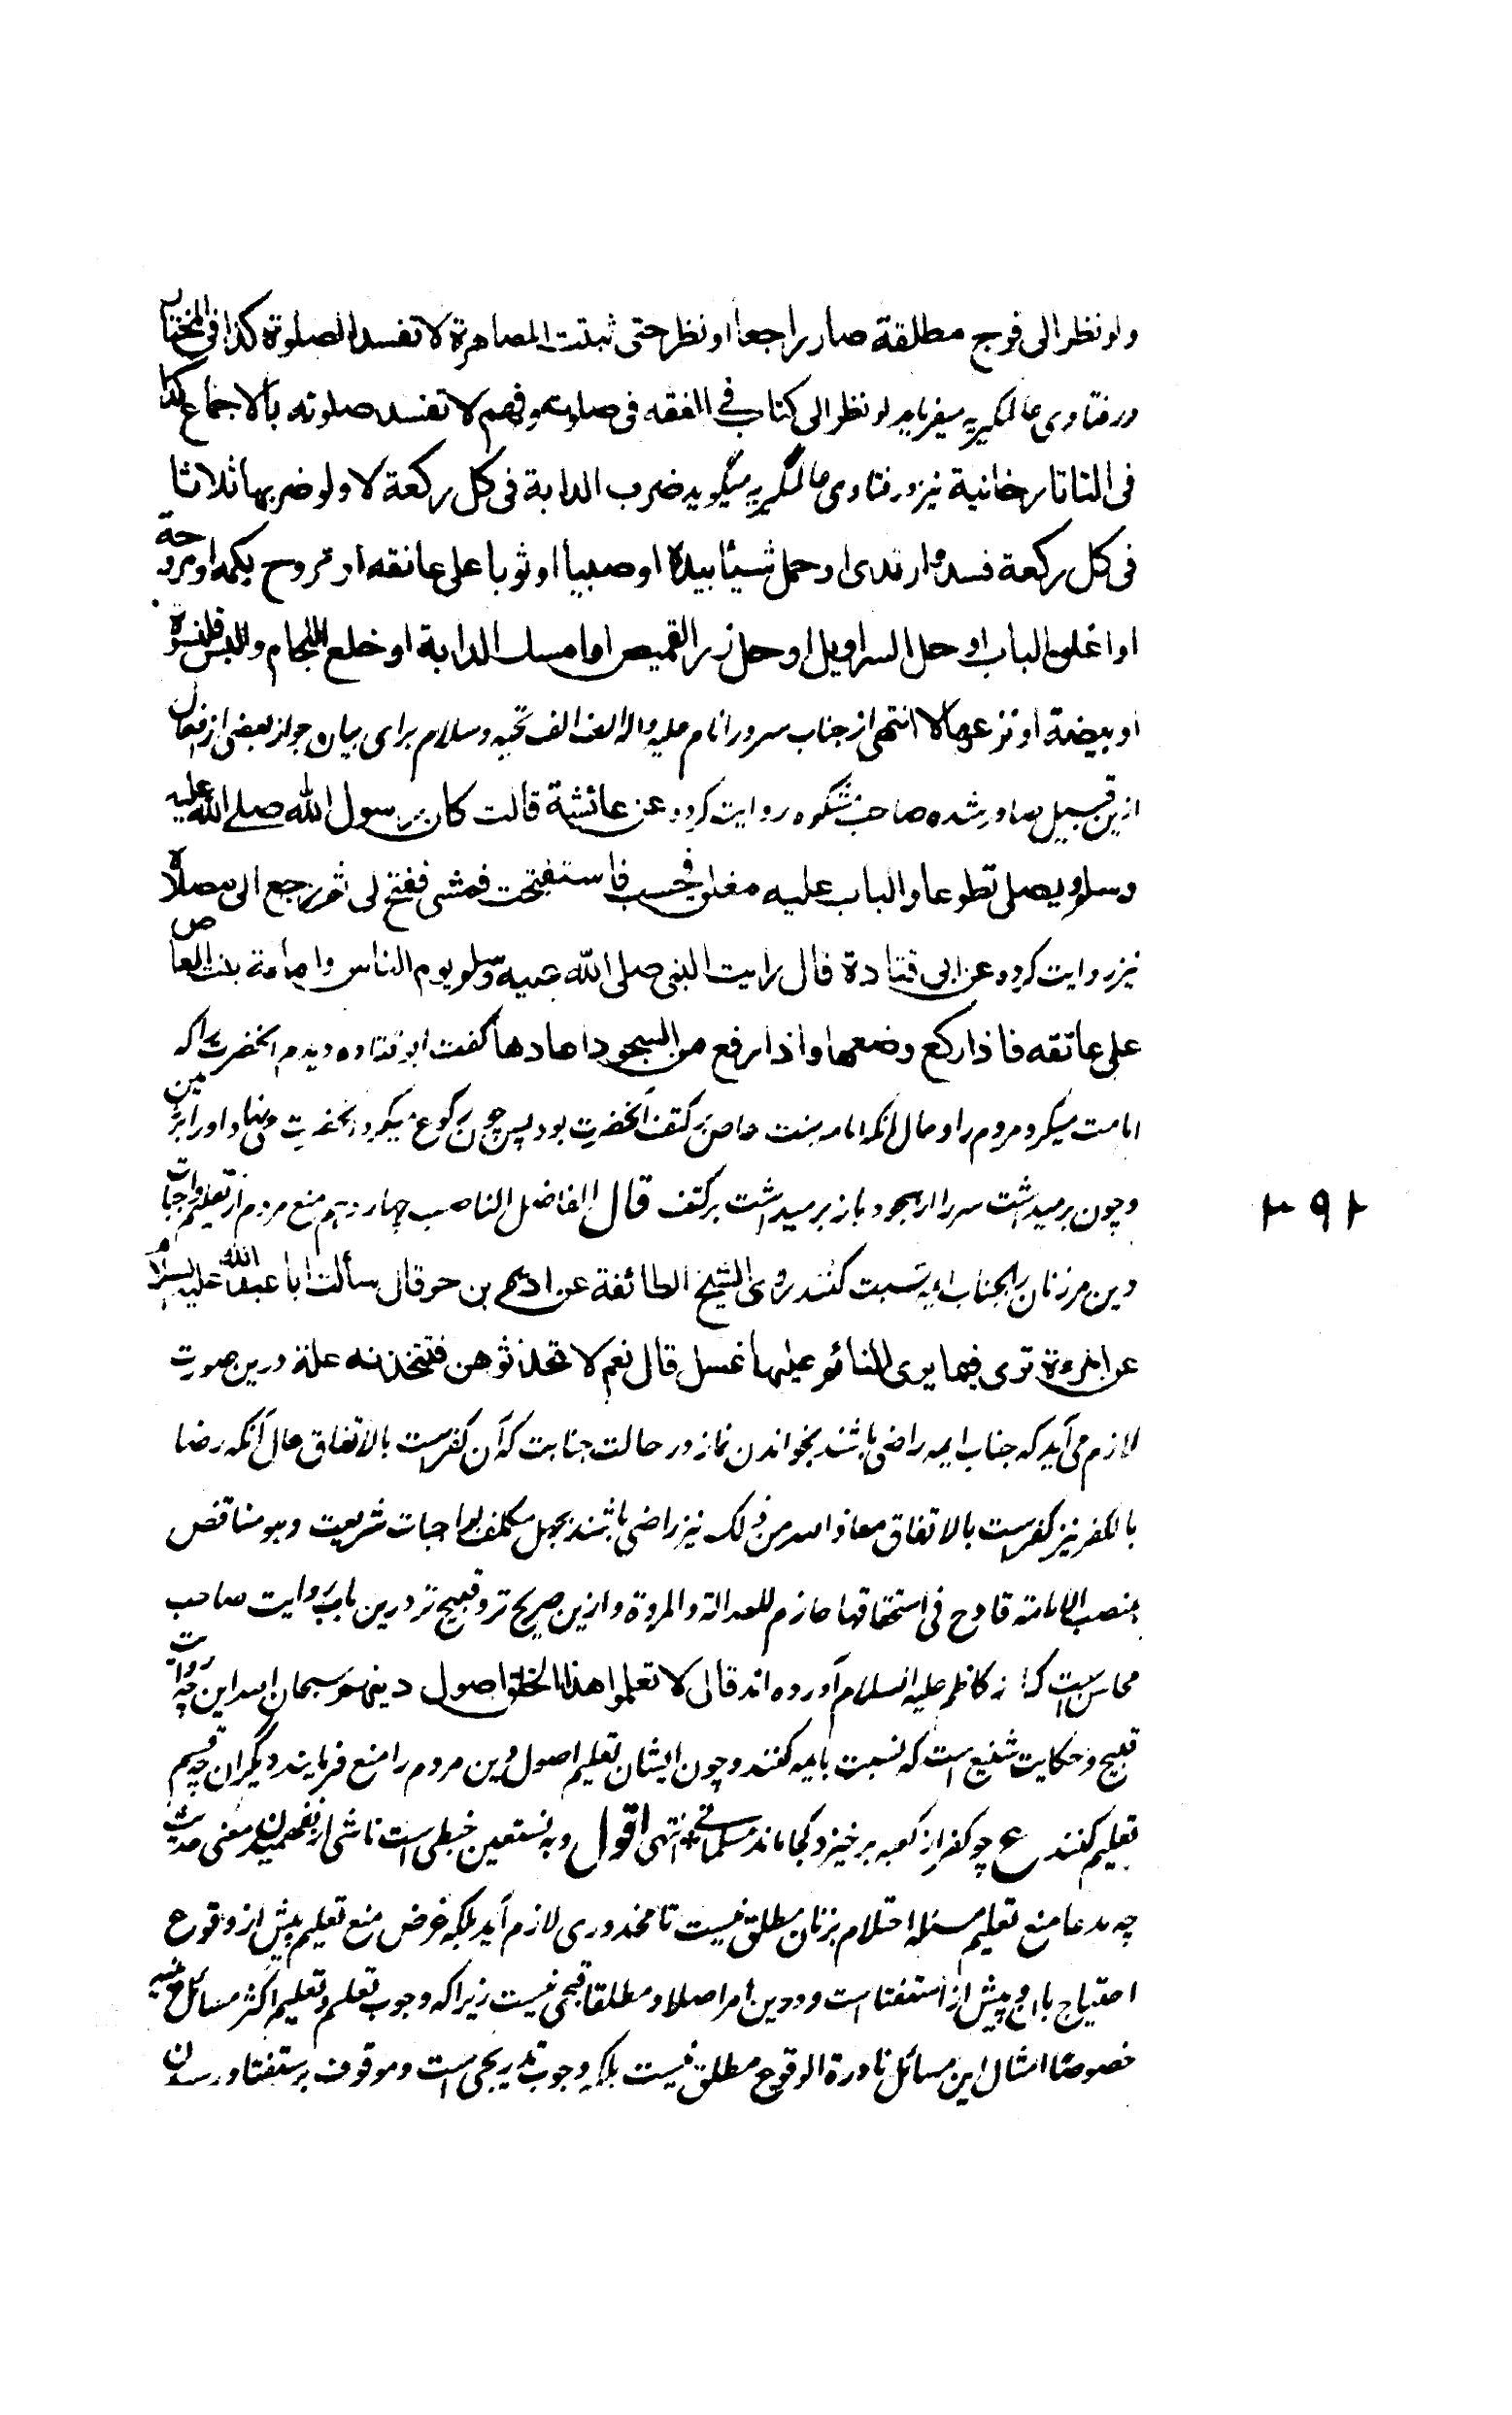 ولو نظر الی فرج مطلقة صار راجعا او نظر حتی ثبتت المصاهرة لا تفسد الصلوة کذا فی المختار
در فتاوی عالمکیریه میفرماید لو نظر الی کتاب فی الفقه فی صلوته وفهم لا تفسد صلوته بالاجماع کذا
فی التاتارخانیة نیز در فتاوی عالمگیریه میگوید ضرب الدابة فی کل رکعة لا ولو ضربها ثلاثا
فی کل رکعة فسد وارتدی او حمل شیئا بیده او صبیا او ثوبا علی عاتقه او تروح بکمه او مروحة
او اغلق الباب او حل السراویل او حل زر القمیص او امسک الدابة او خلع اللجام والبس قلنسوة
او بیضة او نزعها لا انتهی از جناب سرور انام علیه واله الف الف تحیه وسلام برای بیان جواز بعضی از افعال
ازین قبیل صادر شده صاحب مشکوه روایت کرده عن عائشة قالت کان رسول الله صلی الله علیه
وسلم یصلی تطوعا والباب علیه مغلق فجئت فاستفتحت فمشی ففتح لی ثم رجع الی مصلاه
نیز روایت کرده عن ابی قتادة قال رایت النبی صلی الله علیه وسلم یوم الناس وامامة بنت العاص
علی عاتقه فاذا رکع وضعها واذا رفع من السجود اعادها گفت ابو قتاده دیدم انحضرت را که
امامت میکرد مردم را و حال آنکه امامه بنت عاص بر کتف آنحضرت بود پس چون رکوع میکرد انحضرت می نهاد او را بر زمین
و چون برمیداشت سر را از سجود باز برمیداشت بر کتف قال الفاضل الناصب چهاردهم منع مردم از تعلیم واجبات
دین مر زنان را بجناب ایمه نسبت کنند روی الشیخ الطائفة عن ادیم بن حر قال سألت ابا عبد الله علیه السلام
عن المرءة تری فیما یری النائم علیها غسل قال نعم لا تحدثوهن فتتخذنه علة درین صورت
لازم می آید که جناب ایمه راضی باشند بخواندن نماز در حالت جنابت که آن کفر است بالاتفاق حال آنکه رضا
بالکفر نیز کفر است بالاتفاق معاذ الله من ذلک نیز راضی باشند بجهل مکلف بواجبات شریعت و هو مناقض
بمنصب الامامته قادح فی استحقاقها خازم للعدالة والمروة و ازین صریح تر و قبیح تر درین باب روایت صاحب
محاسن است که از کاظم علیه السلام آورده اند قال لا تعلموا هذا الخلق اصول دینهم سبحان الله این چه روایت
قبیح و حکایت شنیع است که نسبت بایمه کنند و چون ایشان تعلیم اصول دین مردم را منع فرمایند دیگران چه قسم
تعلیم کنند ع چو کفر از کعبه برخیزد کجا ماند مسلمانی* انتهی اقول وبه نستعین خبطی است ناشی از نفهمیدن معنی حدیث
چه مدعا منع تعلیم مسئله احتلام بزنان مطلق نیست تا محذوری لازم آید بلکه غرض منع تعلیم پیش از وقوع
احتیاج بان و پیش از استفتا است و درین امر اصلا و مطلقا قبحی نیست زیرا که وجوب تعلم و تعلیم اکثر مسائل
خصوصا امثال این مسائل نادرة الوقوع مطلق نیست بلکه وجوب تدریجی است و موقوف بر استفتا و
۲۹۲